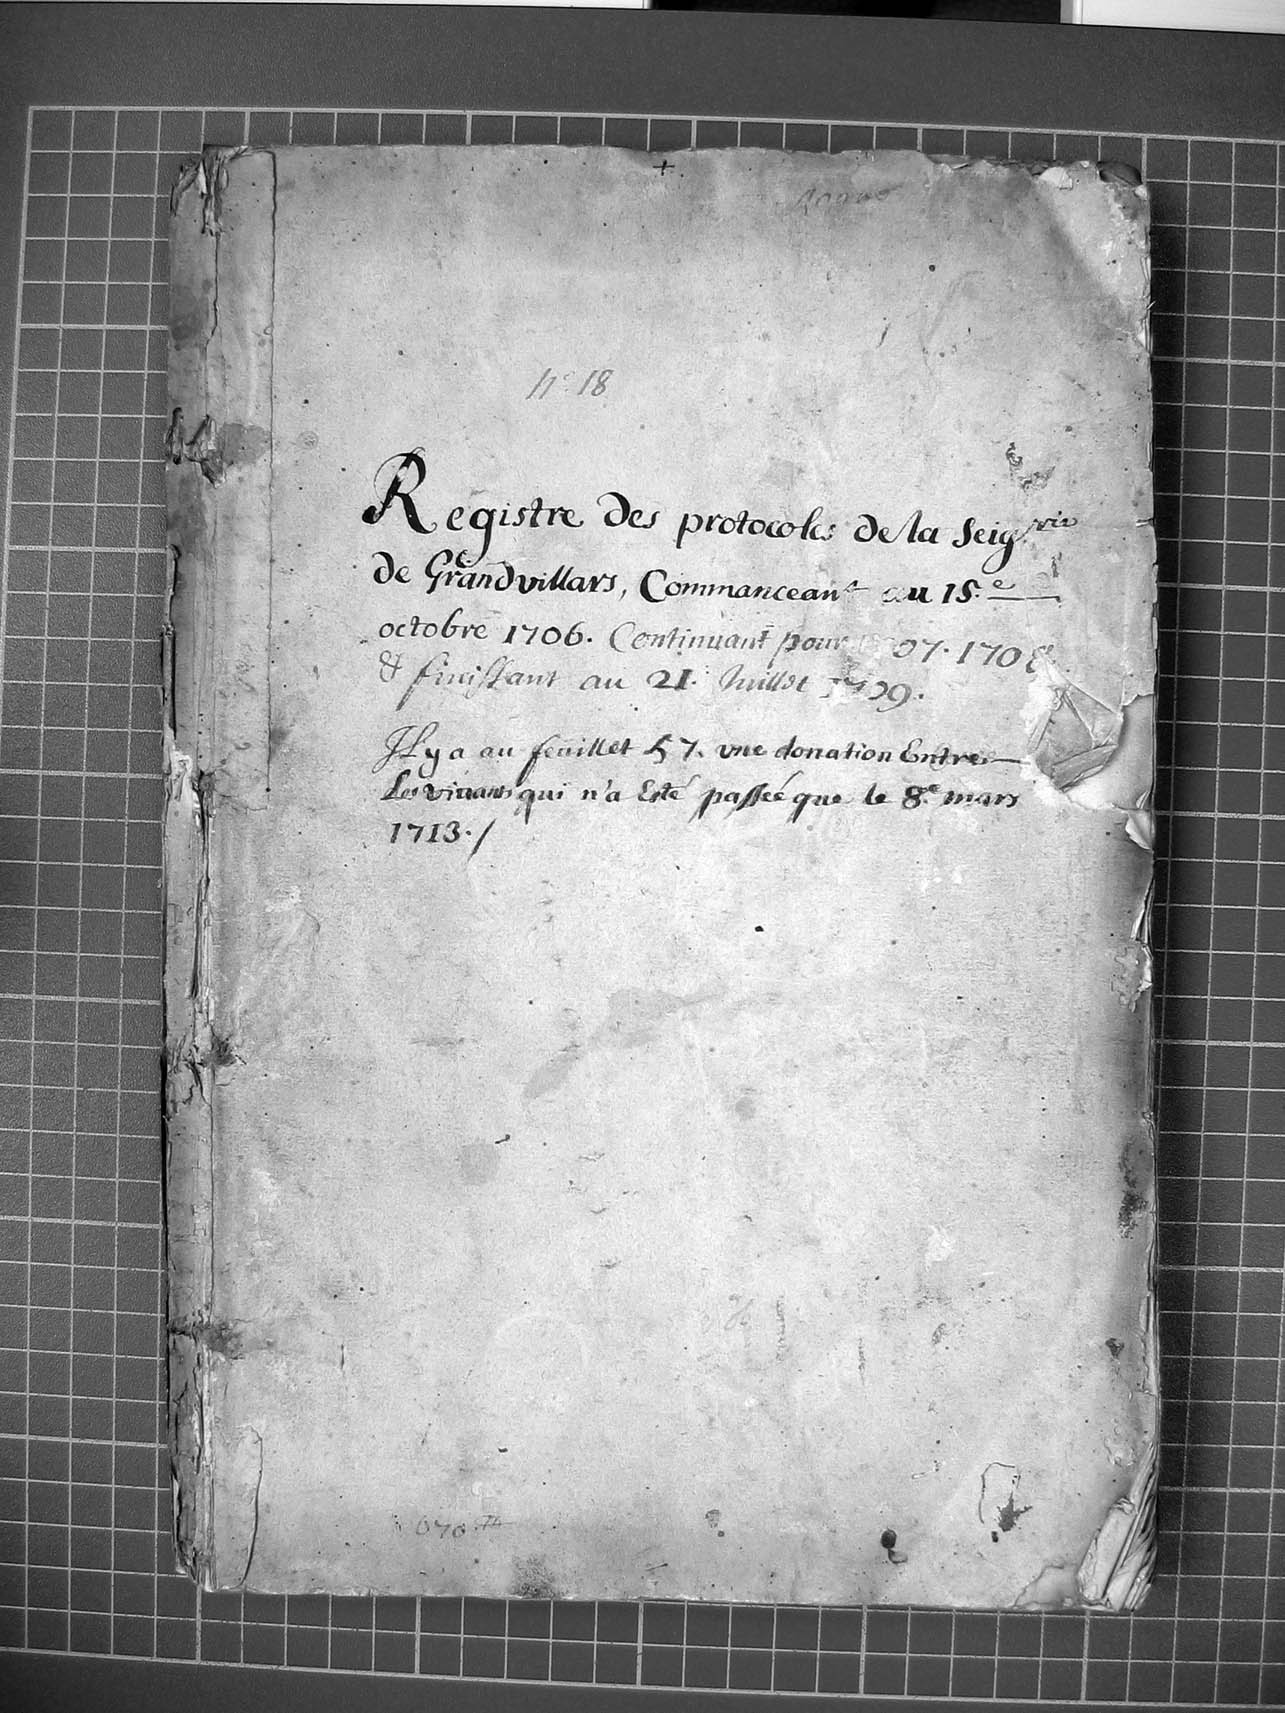 nº 18
Registre des protocoles de la Seig.rie
de Grandvillars, Commanceant au 15.e
octobre 1706. Continuant pour 1707. 1708
& finissant au 21. Juillet 1709.
Il y a au feüillet 57. vne donation Entre
les viuants qui n'a Esté passeé que le 8.e mars
1713. /